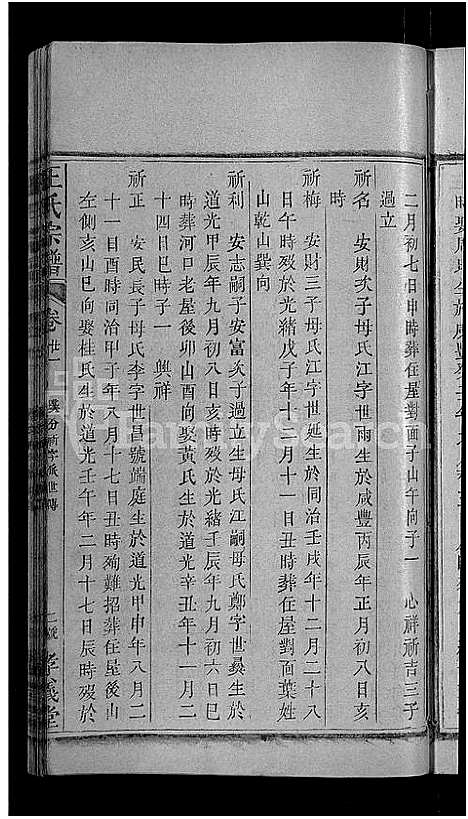 二月初七日申時葬住屋對面子山午向子一　心祥祈吉三子
過立
祈名　安財次子母氏江字世雨生於咸豐丙辰年正月初八日亥
時
祈梅　安財三子母氏江字世延生於同治壬戌年十二月二十八
日午時殁於光緒戊子年十二月十一日丑時葬在屋對面葉姓
山乾山巽向
祈利　安志嗣子安富次子過立生母氏江嗣母氏鄭字世彝生於
道光甲辰年九月初八日亥時殁於光緒壬辰年九月初六日巳
時葬河口老屋後卯山酉向娶黃氏生於道光辛丑年十一月二
十四日巳時子一　興祥
祈正　安民長子母氏李字世昌號端庭生於道光甲申年八月二
十一日酉時同治甲子年八月十七日丑時殉難招葬住屋後山
左側亥山巳向娶桂氏生於道光壬午年二月十七日辰時殁於
王氏宗譜
卷廿一
祈字派世傳
孝義堂
FamilySearch